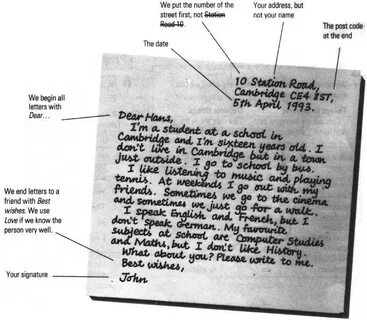 We put the number of the
street first, not Station
Road 10.
Your address, but
not your name
The post code
at the end
The date
10 Station Road,
Cambridge CE4 8ST,
5th April 1993.
We begin all
letters with
Dear...
Dear Hans,
I'm a student at a school in
Cambridge and I'm sixteen years old. I
don't live in Cambridge but in a town
just outside. I go to school by bus.
I like listening to music and playing
tennis. At weekends I go out with my
friends. Sometimes we go to the cinema
and sometimes we just go for a walk.
I speak English and French, but I
don't speak German. My favourite
subjects at school are Computer Studies
and Maths, but I don't like History.
What about you? Please write to me.
Best wishes,
John
We end letters to a
friend with Best
wishes. We use
Love if we know the
person very well.
Your signature